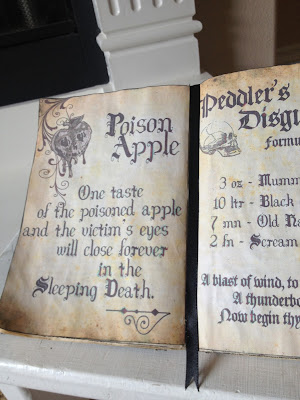 Poison
Apple
One taste
of the poisoned apple
and the victim's eyes
will close forever
in the
Sleeping Death.
Peddler's
3 oz -
10 ltr - Black
7 mn - Old
2 fn - Scream
A blast of wind, to
A
Now begin